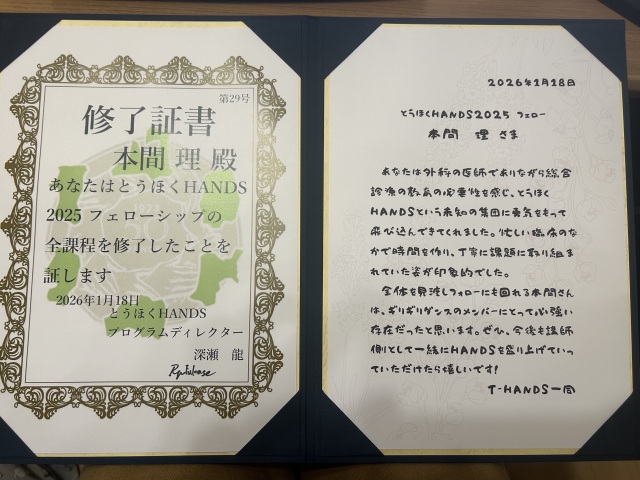 第29号
修了証書
本間 理 殿
あなたはとうほくHANDS
2025 フェローシップの
全課程を修了したことを
証します
2026年1月18日
とうほくHANDS
プログラムディレクター
深瀬 龍
2026年1月18日
とうほくHANDS2025 フェロー
本間 理 さま
あなたは外科の医師でありながら総合
診療の教育の必要性を感じ、とうほく
HANDSという未知の集団に勇気をもって
飛び込んできてくれました。忙しい臨床のな
かで時間を作り、丁寧に課題に取り組ま
れていた姿が印象的でした。
全体を見渡しフォローにも回れる本間さん
は、ギリギリダンスのメンバーにとって心強い
存在だったと思います。ぜひ、今後も講師
側として一緒にHANDSを盛り上げていっ
ていただけたら嬉しいです!
T-HANDS一同